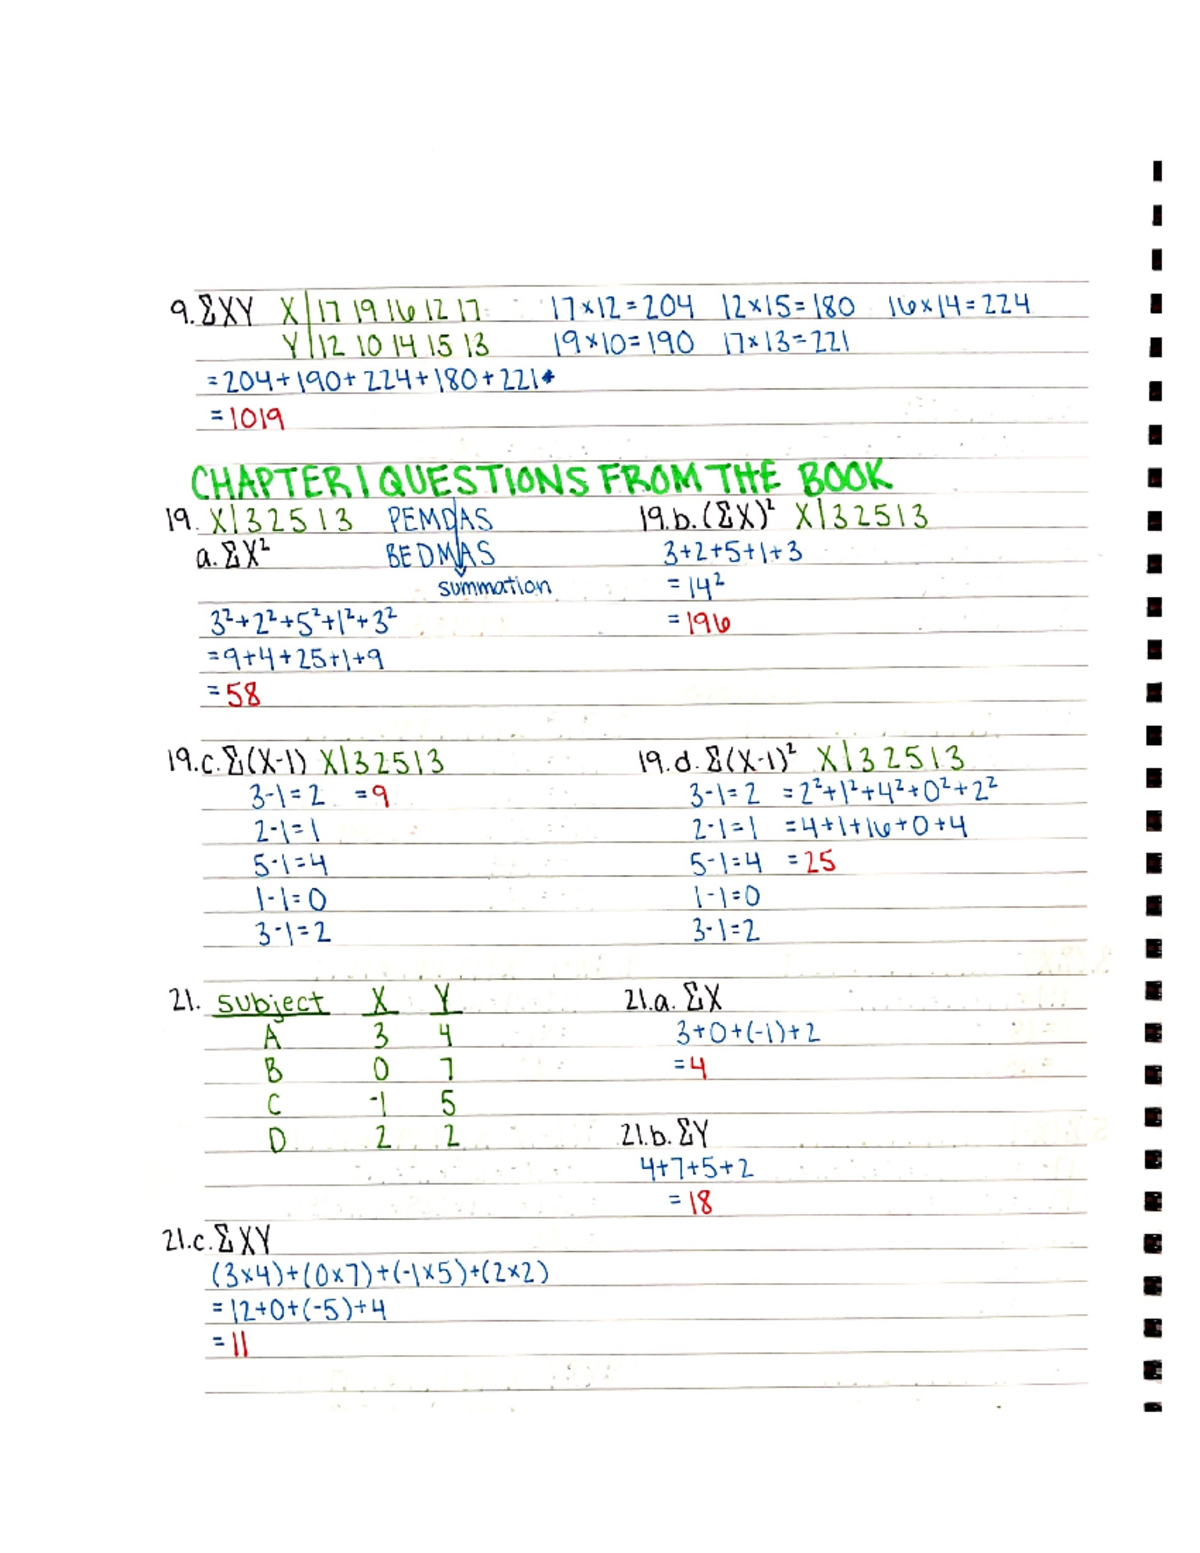 9. ΣXY X | 17 19 16 12 17 17×12=204 12×15=180 16×14=224
Y | 12 10 14 15 13 19×10=190 17×13=221
=204+190+224+180+221
=1019
CHAPTER 1 QUESTIONS FROM THE BOOK
19. X | 3 2 5 1 3 PEMDAS
a. ΣX² BEDMAS
summation
3²+2²+5²+1²+3²
=9+4+25+1+9
=58
19.b. (ΣX)² X | 3 2 5 1 3
3+2+5+1+3
=14²
=196
19.c. Σ(X-1) X | 3 2 5 1 3
3-1=2 =9
2-1=1
5-1=4
1-1=0
3-1=2
19.d. Σ(X-1)² X | 3 2 5 1 3
3-1=2 =2²+1²+4²+0²+2²
2-1=1 =4+1+16+0+4
5-1=4 =25
1-1=0
3-1=2
21. subject X Y
A 3 4
B 0 7
C -1 5
D 2 2
21.a. ΣX
3+0+(-1)+2
=4
21.b. ΣY
4+7+5+2
=18
21.c. ΣXY
(3×4)+(0×7)+(-1×5)+(2×2)
=12+0+(-5)+4
=11